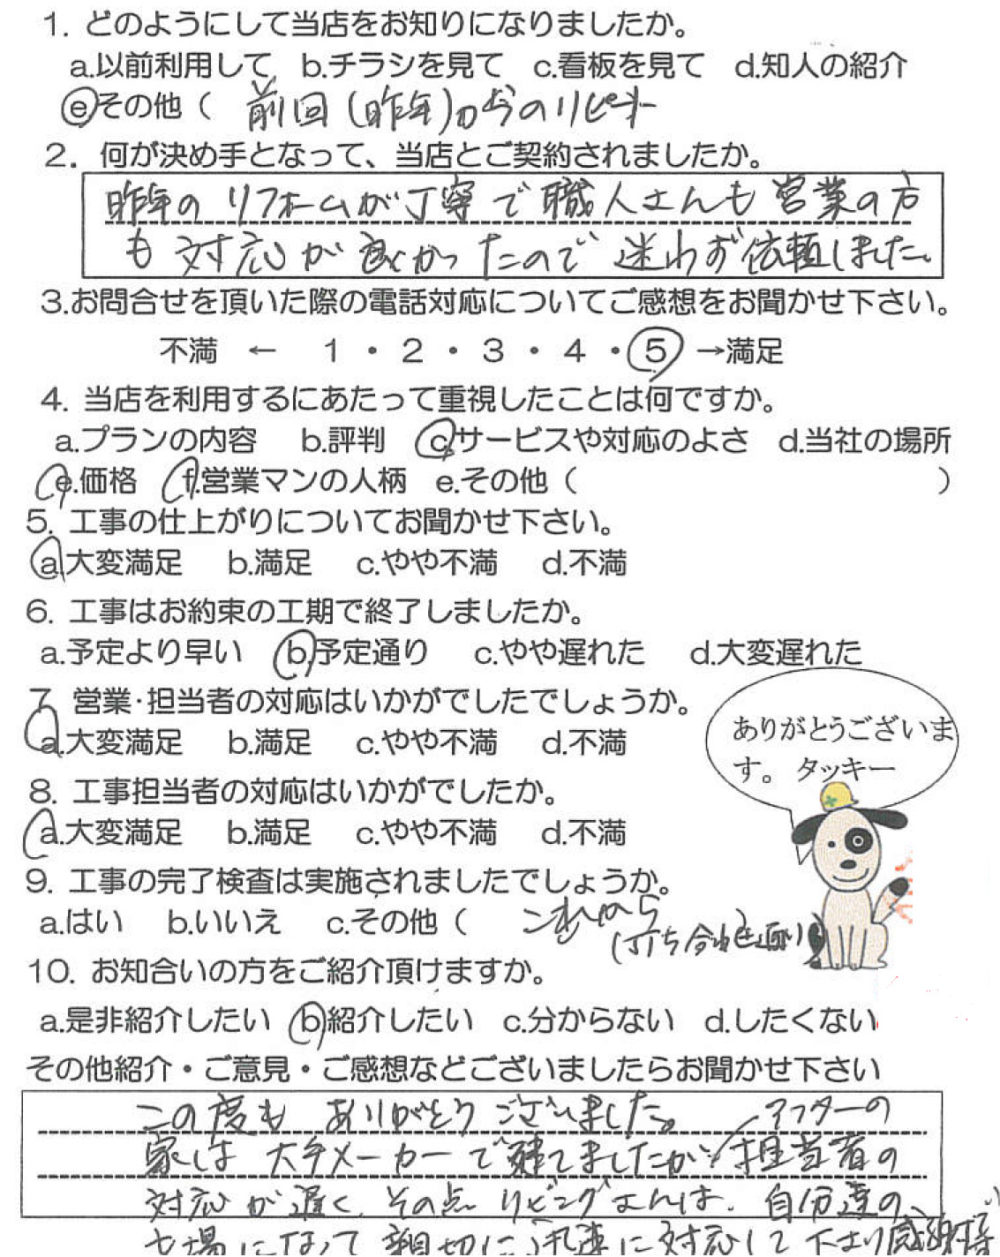 1. どのようにして当店をお知りになりましたか。
a.以前利用して b.チラシを見て c.看板を見て d.知人の紹介
e その他 ( 前回(昨年)からのリピート
2. 何が決め手となって、当店とご契約されましたか。
昨年のリフォームが丁寧で職人さんも営業の方
も対応が良かったので迷わず依頼しました。
3.お問合せを頂いた際の電話対応についてご感想をお聞かせ下さい。
不満 ← 1 ・ 2 ・ 3 ・ 4 ・ 5 →満足
4. 当店を利用するにあたって重視したことは何ですか。
a.プランの内容 b.評判 c.サービスや対応のよさ d.当社の場所
e.価格 f.営業マンの人柄 e.その他 ( )
5. 工事の仕上がりについてお聞かせ下さい。
a.大変満足 b.満足 c.やや不満 d.不満
6. 工事はお約束の工期で終了しましたか。
a.予定より早い b.予定通り c.やや遅れた d.大変遅れた
7. 営業・担当者の対応はいかがでしたでしょうか。
a.大変満足 b.満足 c.やや不満 d.不満
ありがとうございま
す。 タッキー
8. 工事担当者の対応はいかがでしたか。
a.大変満足 b.満足 c.やや不満 d.不満
9. 工事の完了検査は実施されましたでしょうか。
a.はい b.いいえ c.その他 ( これから
(打ち合わせ通り)
10. お知合いの方をご紹介頂けますか。
a.是非紹介したい b.紹介したい c.分からない d.したくない
その他紹介・ご意見・ご感想などございましたらお聞かせ下さい
この度もありがとうございました。 アフターの
家は大手メーカーで建てましたが 担当者の
対応が遅く、その点リビングさんは、自分達の
立場になって親切に迅速に対応して下さり感謝